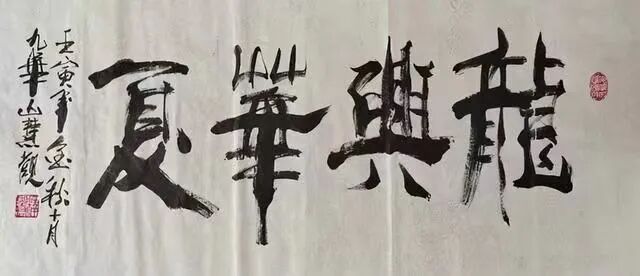 龍興華夏
壬寅年金秋十月
九華山慧觀